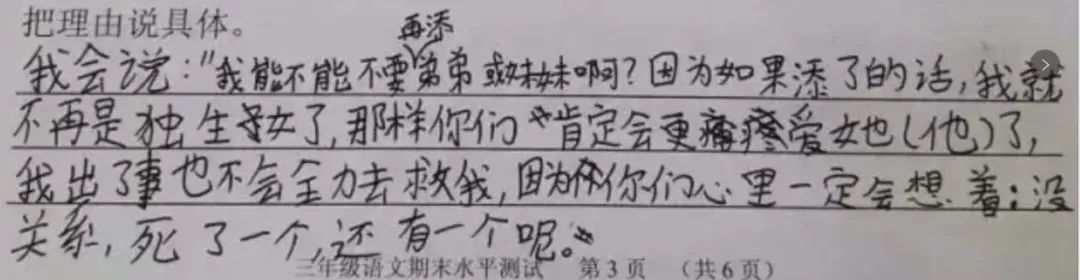 把理由说具体。
我会说："我能不能不要再添弟弟或妹妹啊？因为如果添了的话，我就
不再是独生子女了，那样你们肯定会更疼爱她（他）了，
我出了事也不会全力去救我，因为你们心里一定会想着：没
关系，死了一个，还有一个呢。"
三年级语文期末水平测试 第3页 （共6页）